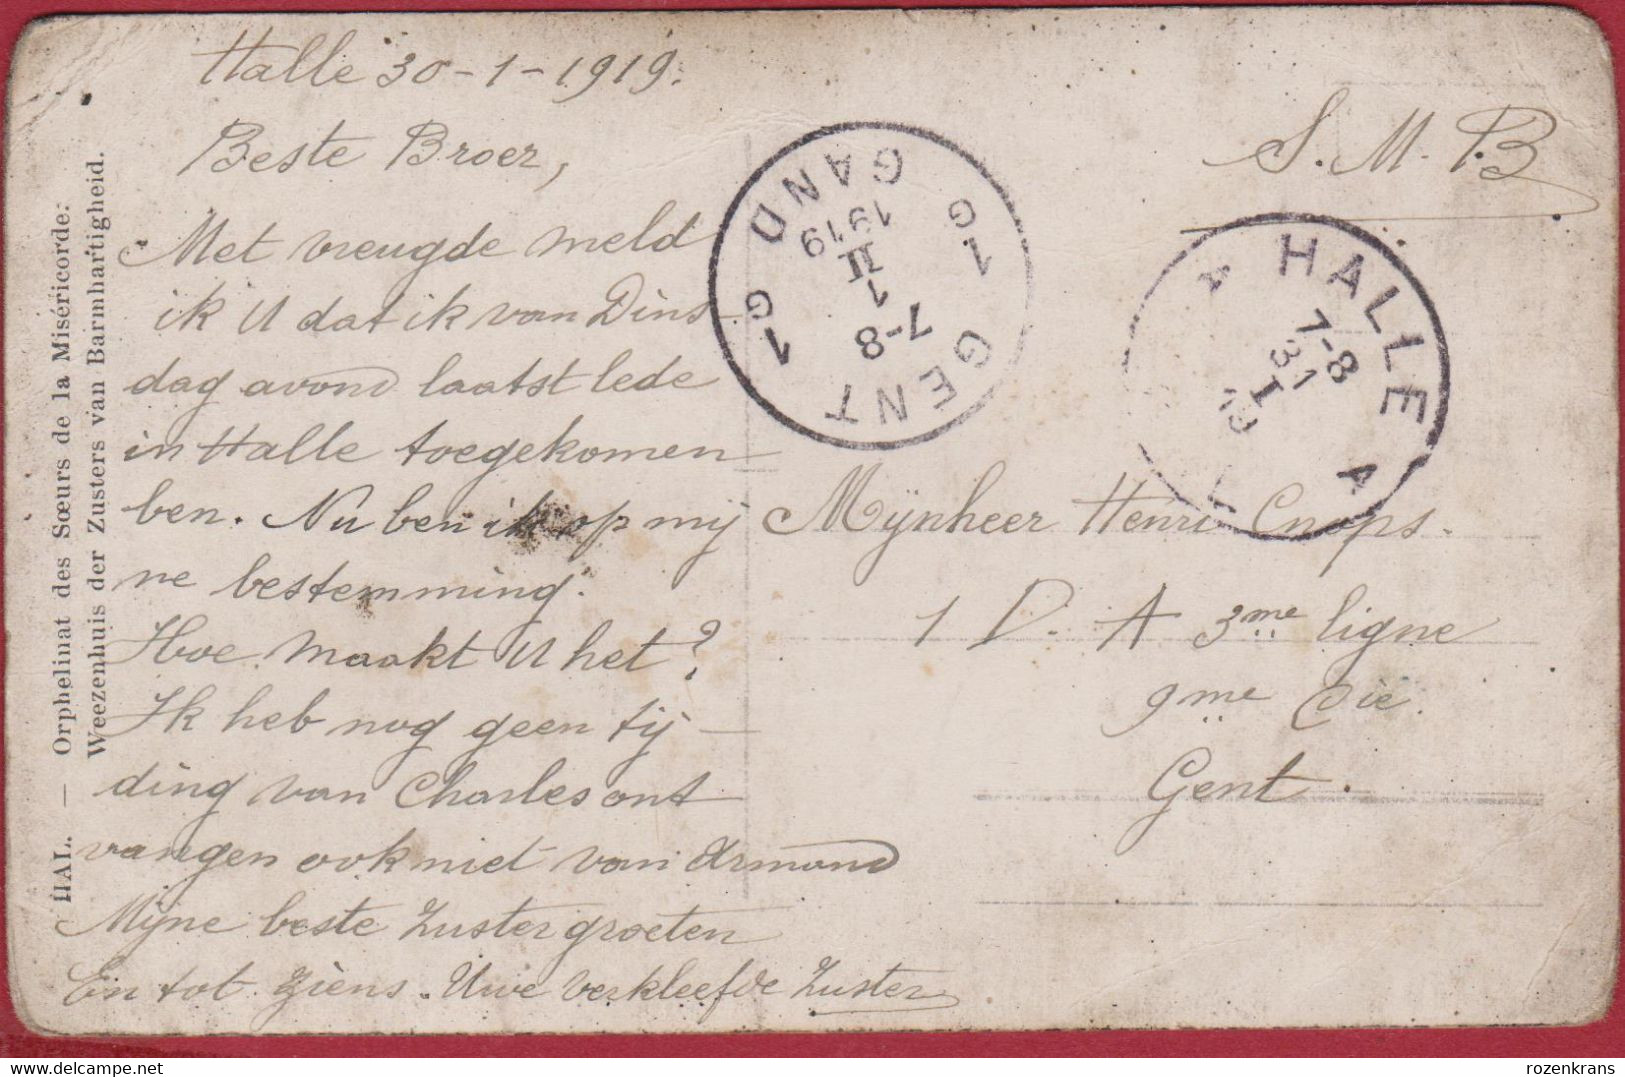 HAL. — Orphelinat des Sœurs de la Miséricorde:
Weezenhuis der Zusters van Barmhartigheid.
Halle 30-1-1919.
Beste Broer,
Met vreugde meld
ik U dat ik van Dins
dag avond laatst lede
in Halle toegekomen
ben. Nu ben ik op mij
ne bestemming.
Hoe maakt U het?
Ik heb nog geen tij
ding van Charles ont
vangen ook niet van Armand
Mijne beste Zuster groeten
En tot ziens. Uwe verkleefde Zuster
GENT 1G
GAND 1G
7-8
1
II
1919
S. M. B
HALLE
7-8
31
I
A A
Mijnheer Henri Cnops.
1 D. A 3me ligne
9me Cie.
Gent.
rozenkrans